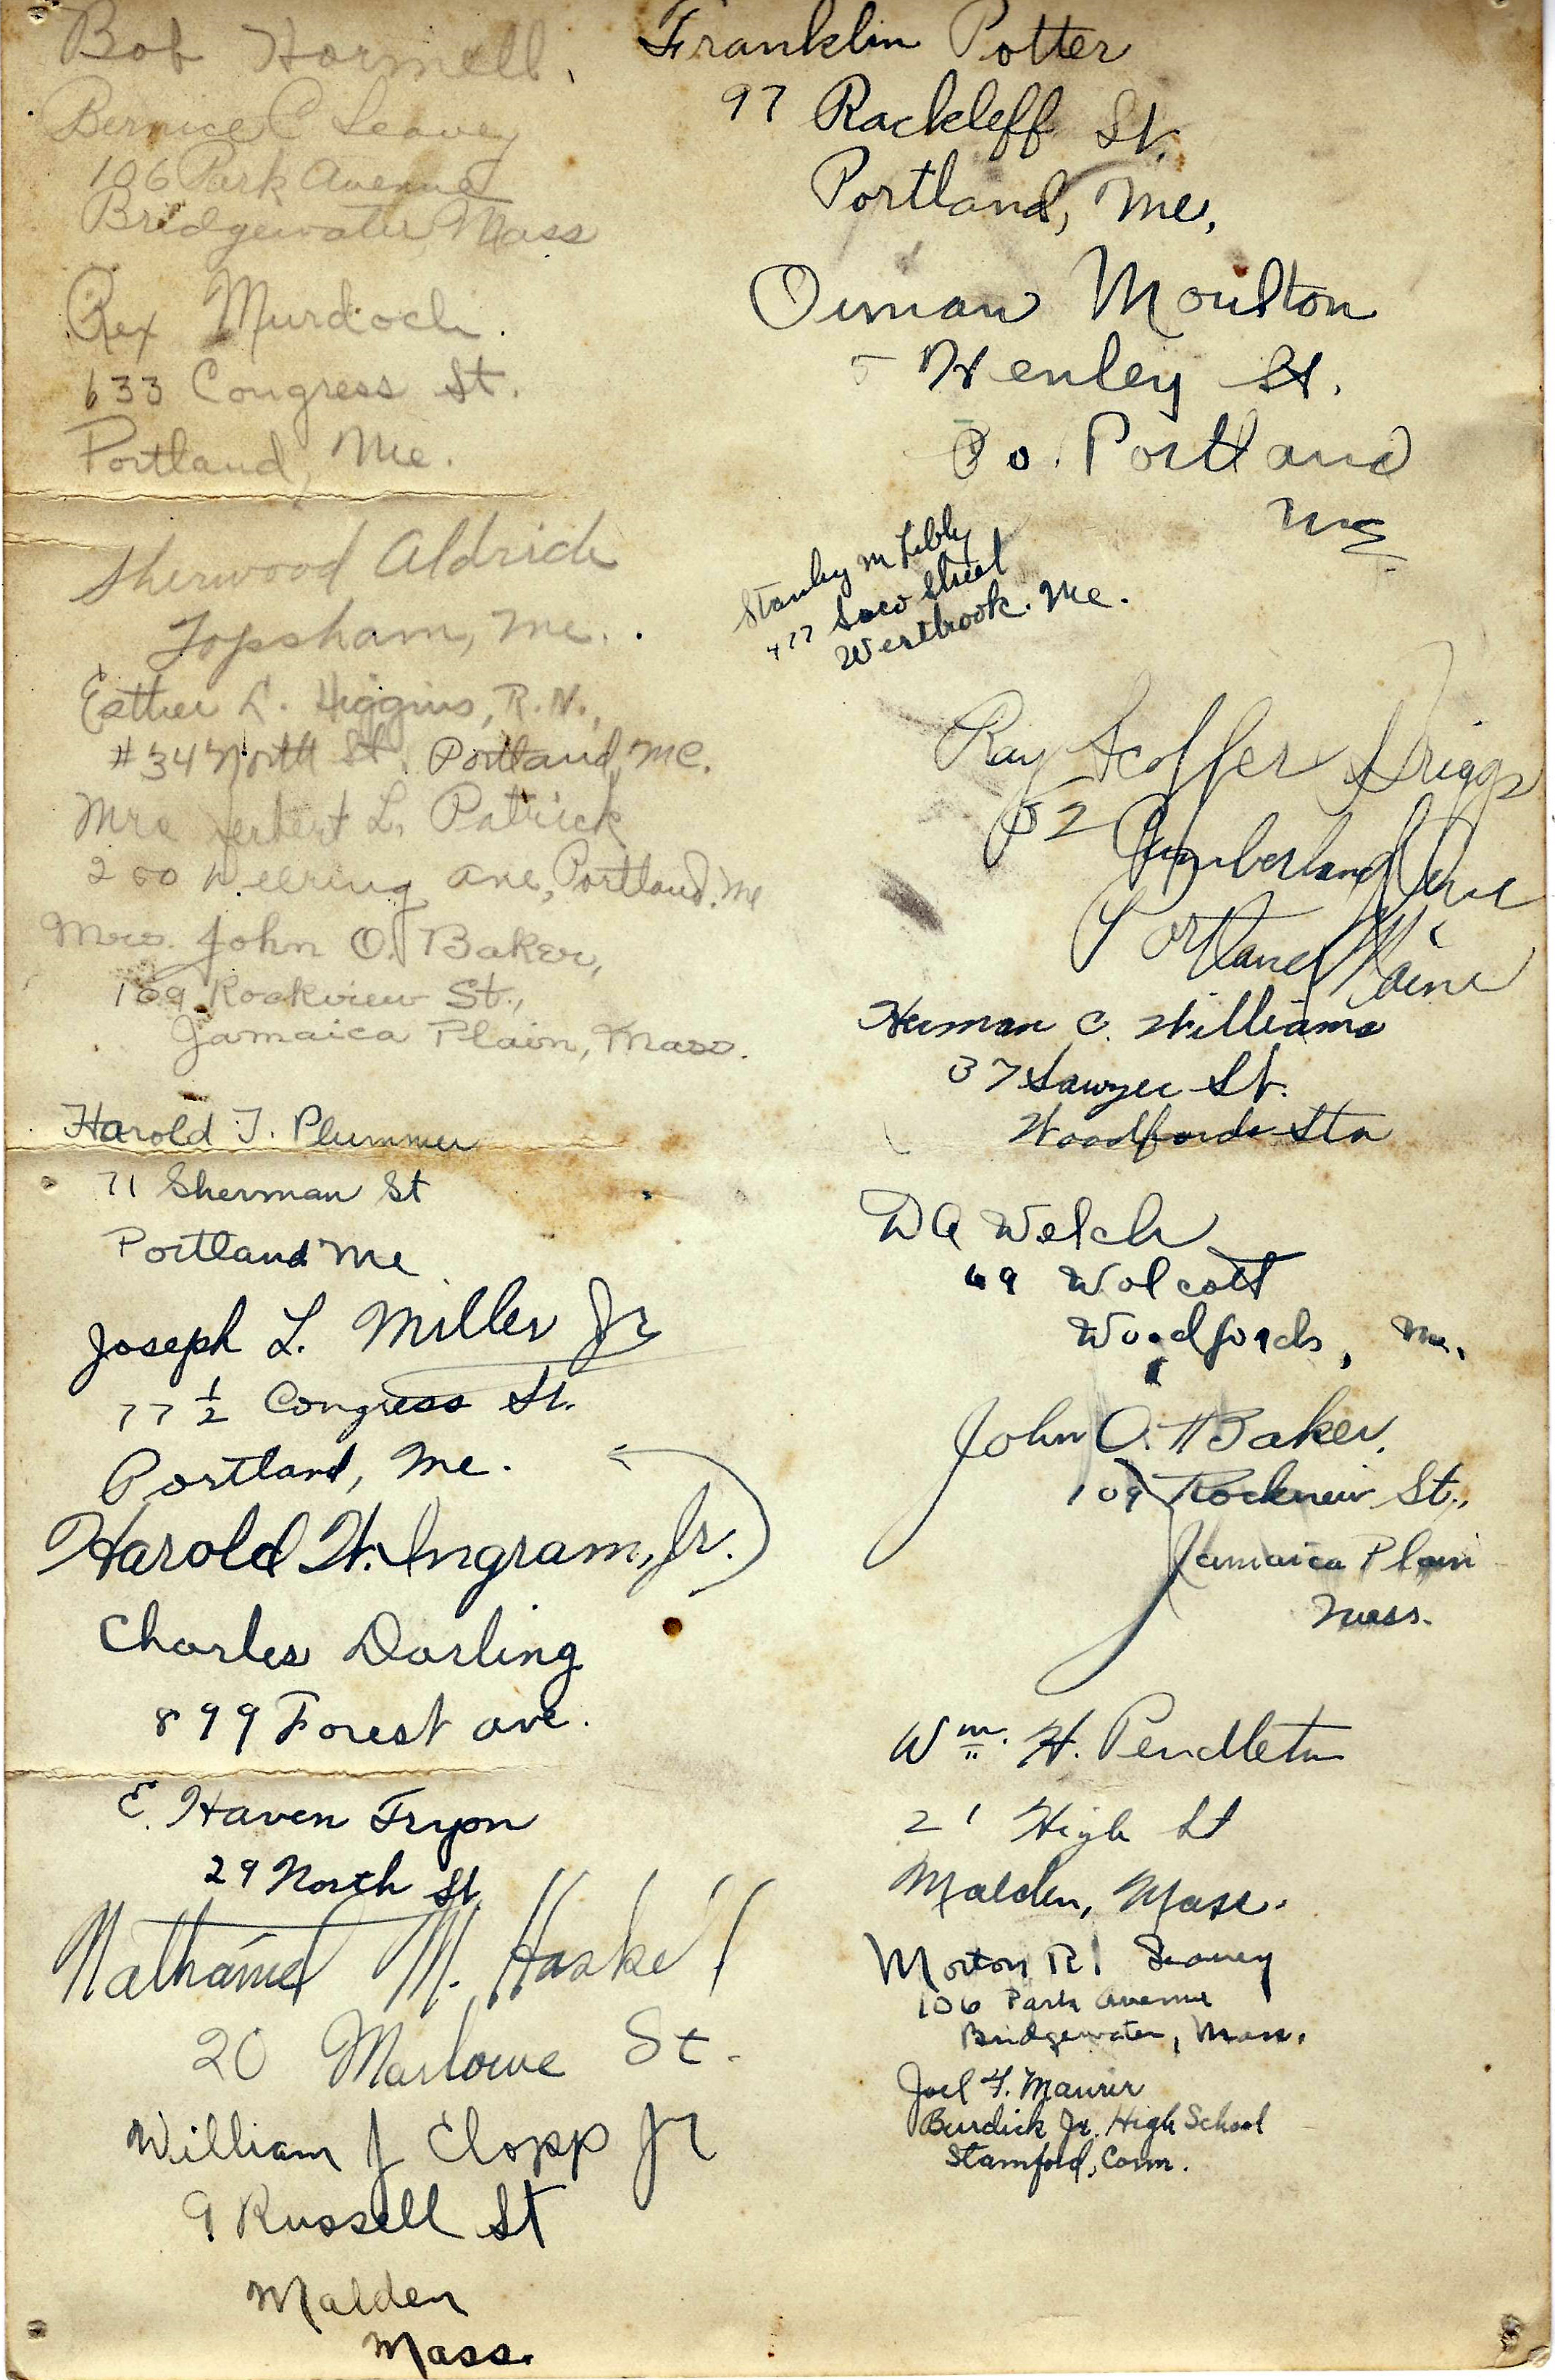 Bob Hormell.
Bernice C Seavey
106 Park Avenue
Bridgewater Mass
Rex Murdoch.
633 Congress St.
Portland, Me.
Sherwood Aldrich
Topsham, Me.
Esther L. Higgins, R.N.,
#34 North St. Portland, Me.
Mrs Herbert L. Patrick
200 Deering Ave, Portland. Me
Mrs. John O. Baker,
109 Rockview St.,
Jamaica Plain, Mass.
Harold T. Plummer
71 Sherman St
Portland Me
Joseph L. Miller Jr
77 1/2 Congress St.
Portland, Me.
Harold W. Ingram, Jr.
Charles Darling
899 Forest Ave.
E. Haven Tryon
29 North St
Nathaniel M. Haskell
20 Marlowe St.
William J Clopp Jr
9 Russell St
Malden
Mass.
Franklin Potter
97 Rackleff St.
Portland, Me.
Orman Moulton
5 Henley St.
So. Portland
Me
Stanley M Libby
477 Saco Street
Westbrook. Me.
Ray Scoffer Driggs
52 Cumberland Ave
Portland Maine
Herman C. Williams
37 Sawyer St.
Woodfords Sta
DA Welch
69 Wolcott
Woodfords, Me.
John O. Baker.
109 Rockview St.,
Jamaica Plain
Mass.
Wm. H. Pendleton
21 High St
Malden, Mass.
Morton R. Seavey
106 Park Avenue
Bridgewater, Mass.
Joel F. Maurer
Burdick Jr. High School
Stamford, Conn.